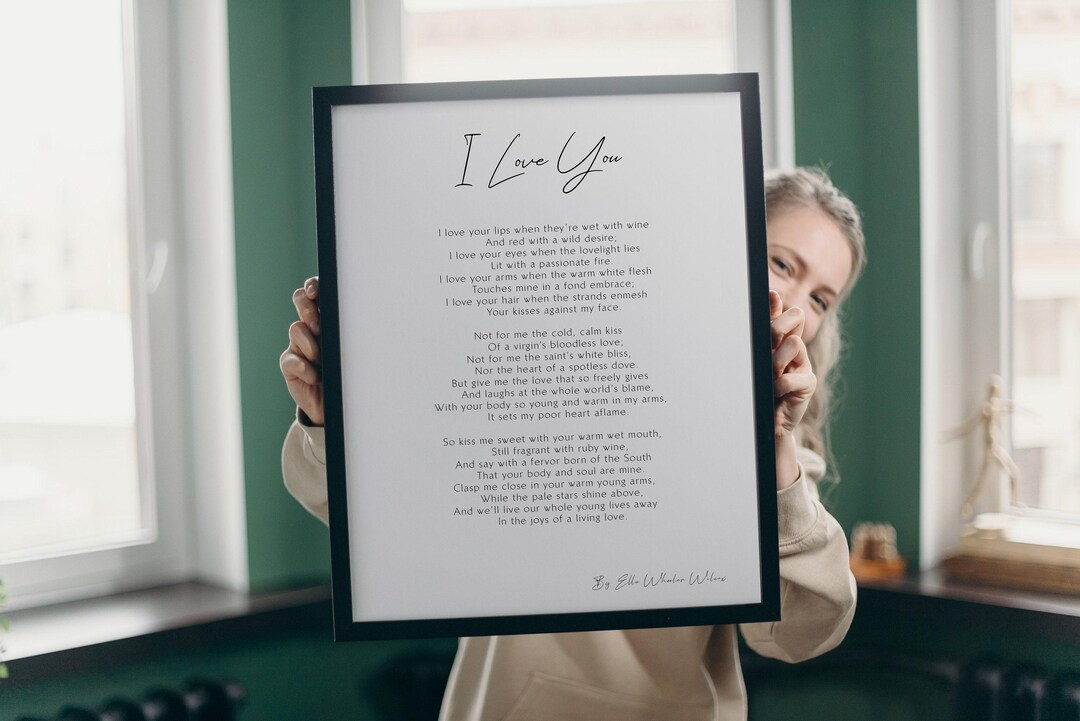 I Love You
I love your lips when they're wet with wine
And red with a wild desire;
I love your eyes when the lovelight lies
Lit with a passionate fire.
I love your arms when the warm white flesh
Touches mine in a fond embrace;
I love your hair when the strands enmesh
Your kisses against my face.
Not for me the cold, calm kiss
Of a virgin's bloodless love;
Not for me the saint's white bliss,
Nor the heart of a spotless dove.
But give me the love that so freely gives
And laughs at the whole world's blame,
With your body so young and warm in my arms,
It sets my poor heart aflame.
So kiss me sweet with your warm wet mouth,
Still fragrant with ruby wine,
And say with a fervor born of the South
That your body and soul are mine.
Clasp me close in your warm young arms,
While the pale stars shine above,
And we'll live our whole young lives away
In the joys of a living love.
By Ella Wheeler Wilcox